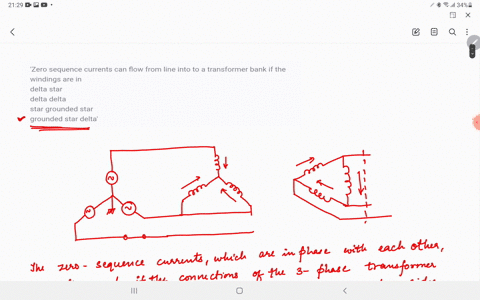 21:29
34%
'Zero sequence currents can flow from line into to a transformer bank if the
windings are in
delta star
delta delta
star grounded star
grounded star delta'
The zero-sequence currents, which are in phase with each other,
if the connections of the 3-phase transformer